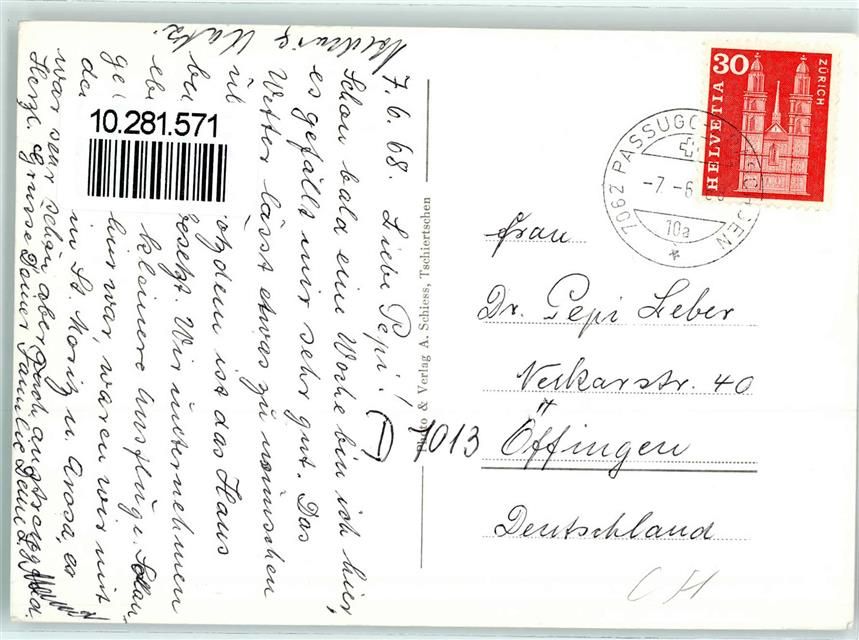 7.6.68. Liebe Pepi!
Schon bald eine Woche bin ich hier,
es gefällt mir sehr gut. Das
Wetter lässt etwas zu wünschen
üb otzdem ist das Haus
be esetzt. Wir unternehmen
ebe kleinere Ausflüge.
ge hur war, waren wir mit
de in St. Moritz u. Arosa, es
war sehr schön aber auch
Herzl. Grüsse Deiner Familie Deine
10.281.571
Photo & Verlag A. Schiess, Tschiertschen
30
HELVETIA
ZÜRICH
7062 PASSUGG
-7.-6
10a
Frau
Dr. Pepi Lieber
Neckarstr. 40
7013 Öffingen
Deutschland
CH